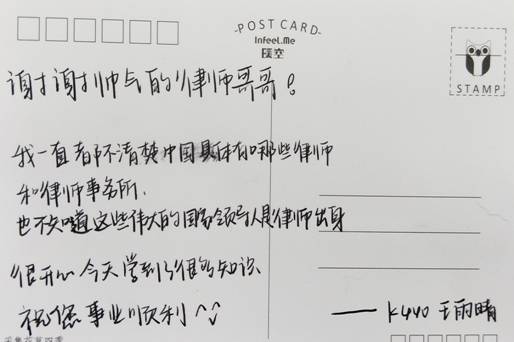 POST CARD
Infeel.Me
STAMP
谢谢帅气的律师哥哥！
我一直都不清楚中国具体有哪些律师
和律师事务所.
也不知道这些伟大的国家领导人是律师出身
很开心今天学到了很多知识
祝您事业顺利^^
—— K440 王雨晴